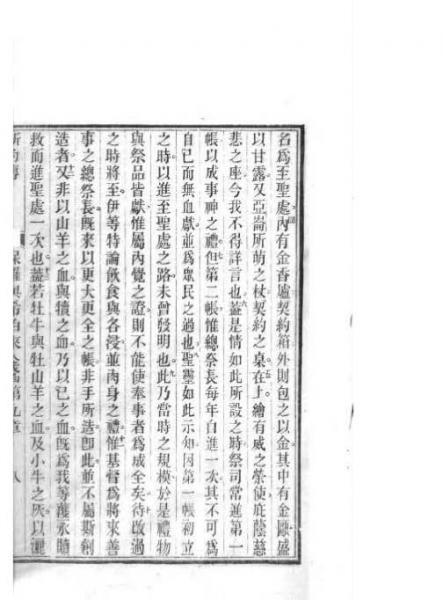 名爲至聖處內有金香爐契約箱外則包之以金其中有金甌盛
以甘露又亞崙所萌之杖契約之桌在上繪有威之榮使庇蔭慈
悲之座今我不得詳言也蓋是情如此所設之時祭司常進第一
帳以成事神之禮但第二帳惟總祭長每年自進一次其不可爲
自己而無血獻並爲眾民之過也聖靈如此示知因第一帳初立
之時以進至聖處之路未曾發明也此乃當時之規模於是禮物
與祭品皆獻惟屬內覺之證則不能使奉事者爲成全矣待改過
之時將至伊等特論飲食與各浸並肉身之禮惟基督爲將來善
事之總祭長旣來以更大更全之帳非手所造卽此並不屬斯創
造者又非以山羊之血與犢之血乃以己之血旣爲我等獲永贖
救而進聖處一次也蓋若牡牛與牡山羊之血及小牛之灰以灑